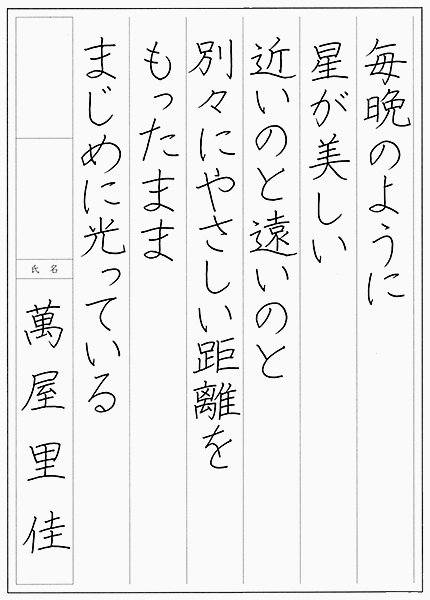 毎晩のように
星が美しい
近いのと遠いのと
別々にやさしい距離を
もったまま
まじめに光っている
氏名
萬屋里佳